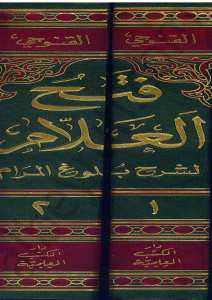 القنوجي القنوجي
فتح
العلام
لشرح بلوغ المرام
١ ٢
دار الكتب العلمية دار الكتب العلمية